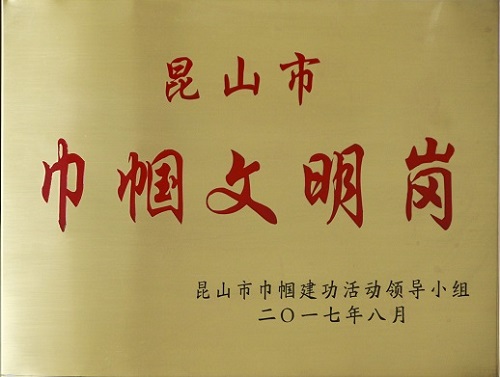 昆山市
巾帼文明岗
昆山市巾帼建功活动领导小组
二〇一七年八月